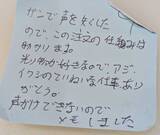 ガンで声を失くした
ので、この注文の仕組みは
助かります。
光り物が好きなので、アジ・
イワシのていねいな仕事、あり
がとう。
声かけできないので
メモしました